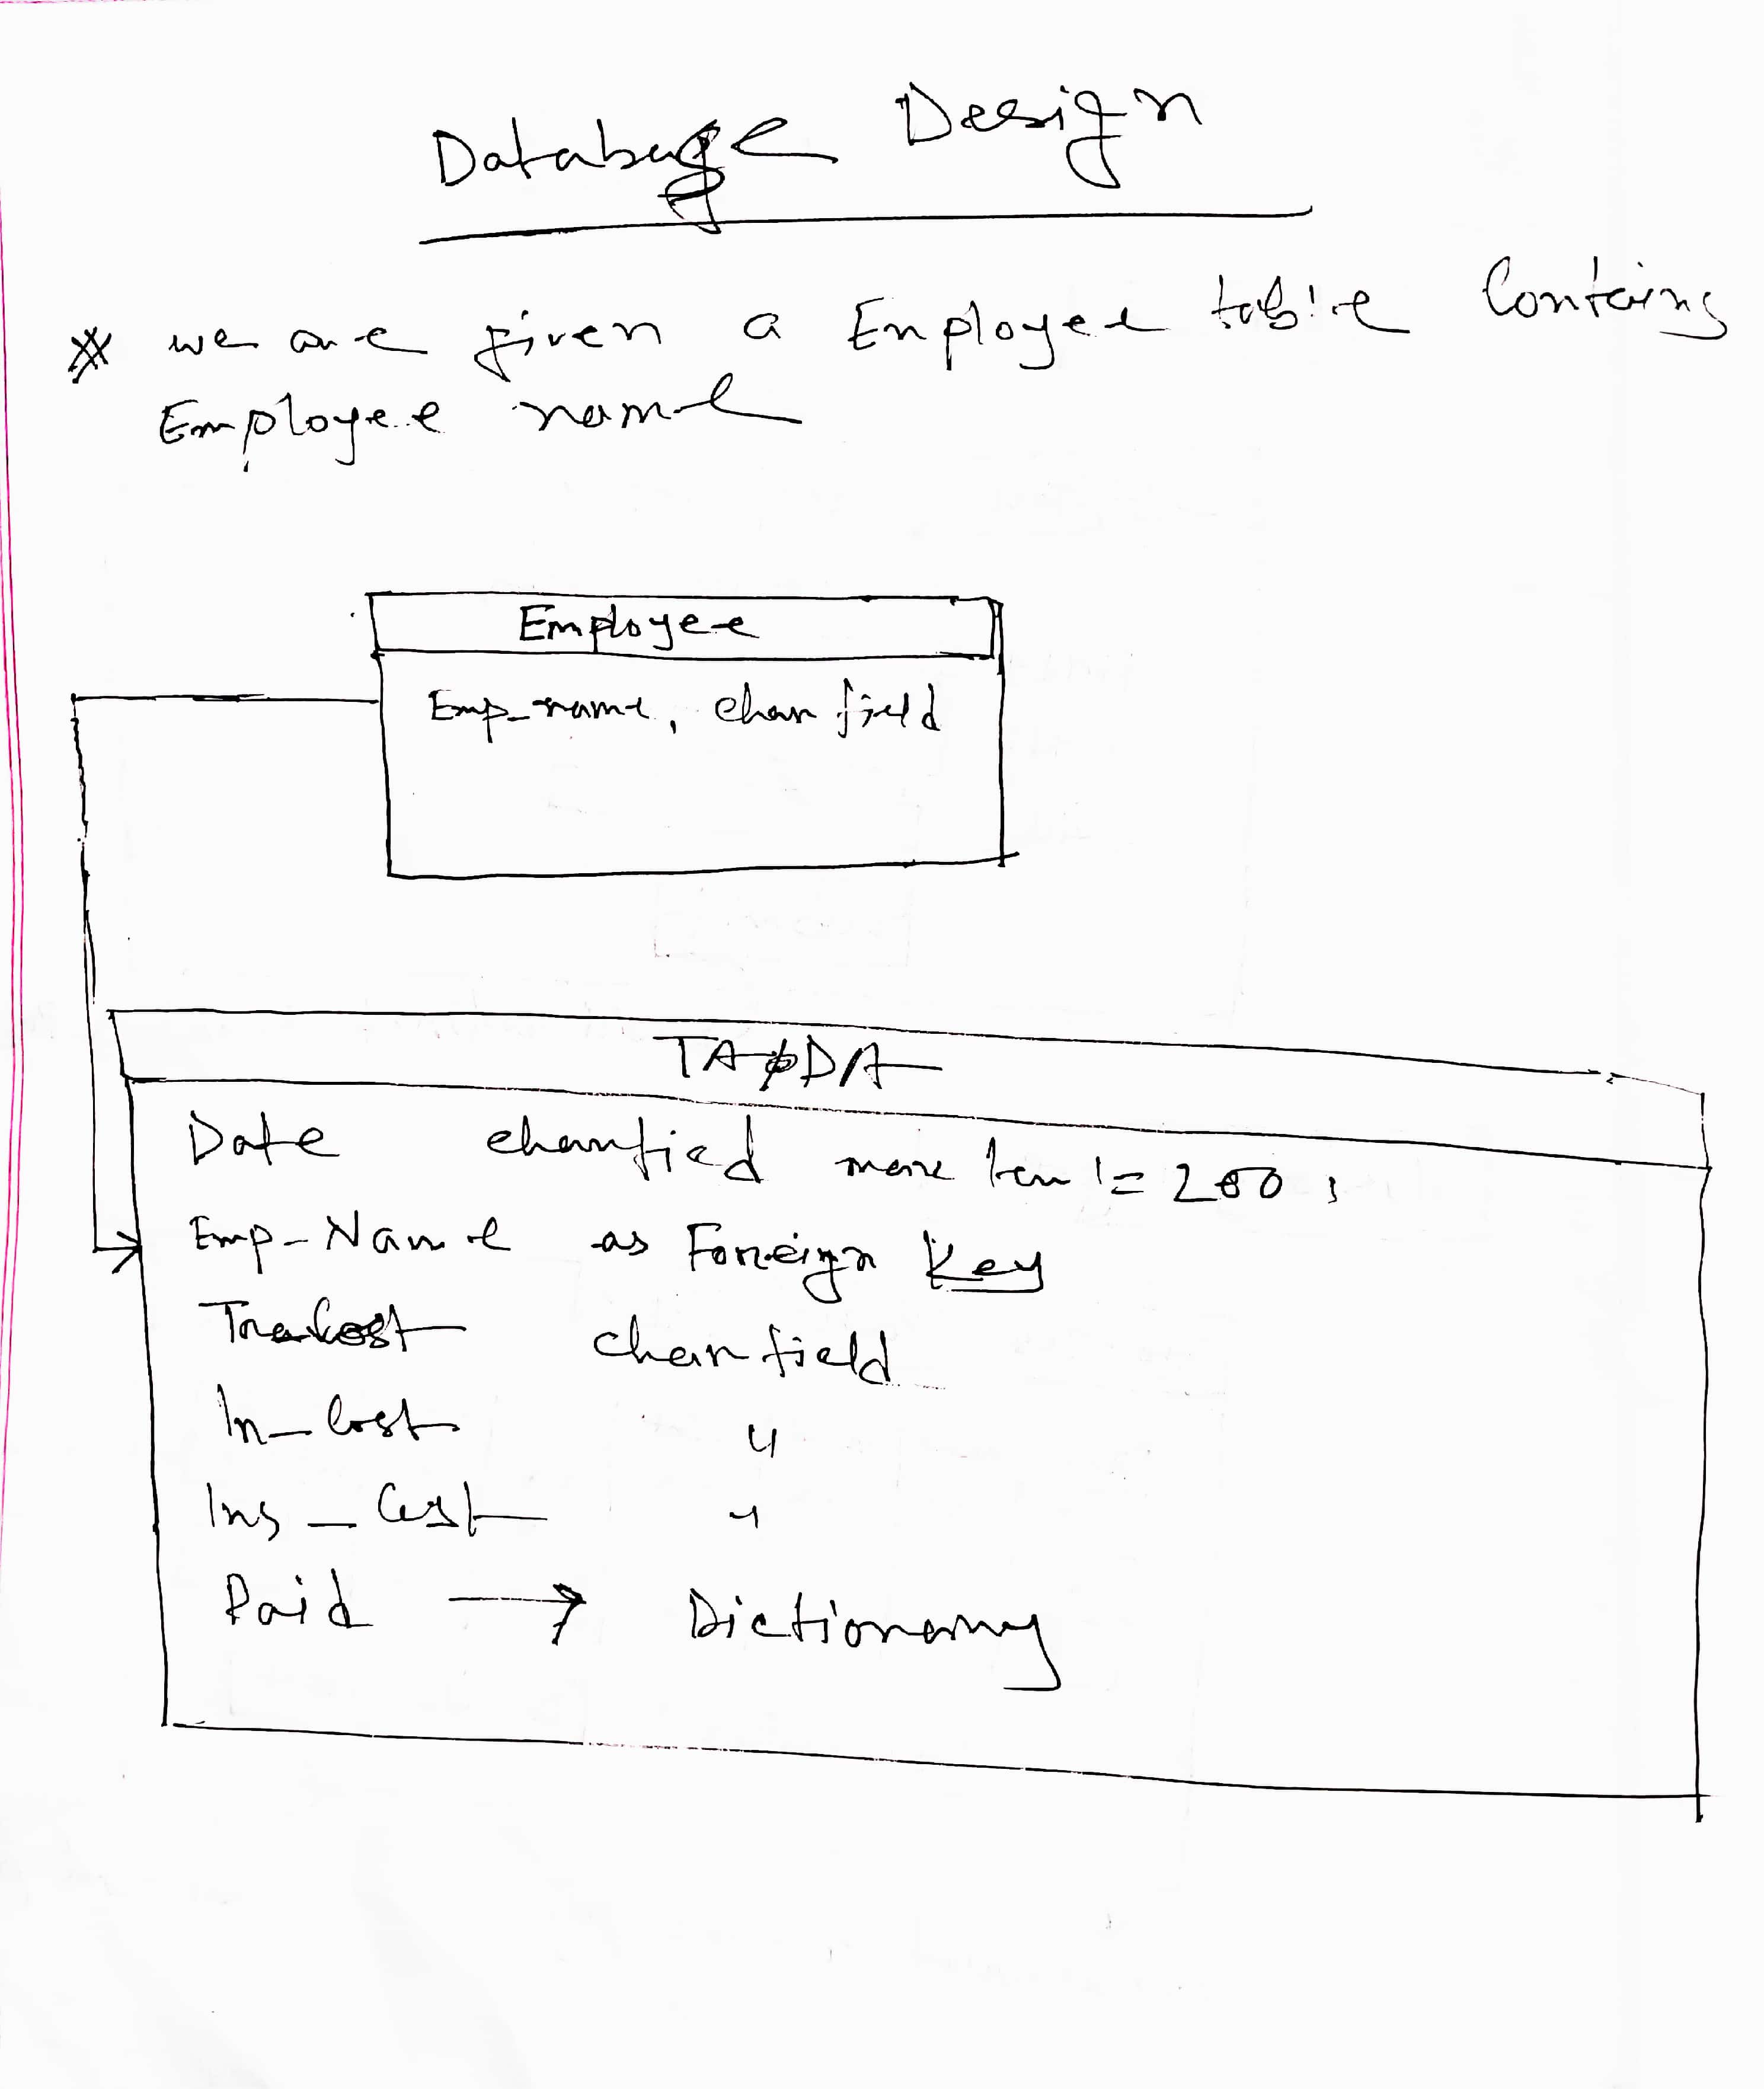 Database Design
* we are given a Employee table Contains
Employee name
Employee
Emp_name, charfield
TA DA
Date charfied max len != 200,
Emp-Name as Foreign Key
TraCost charfield
In_Cost "
Ins_Cost "
Paid → Dictionary